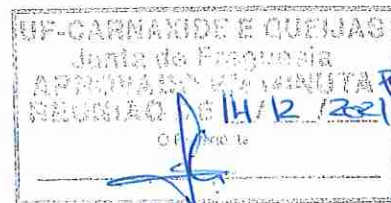 UF-CARNAXIDE E QUEIJAS
Junta de Freguesia
APROVADO EM MINUTA
REUNIÃO 14/12/2021
O Presidente